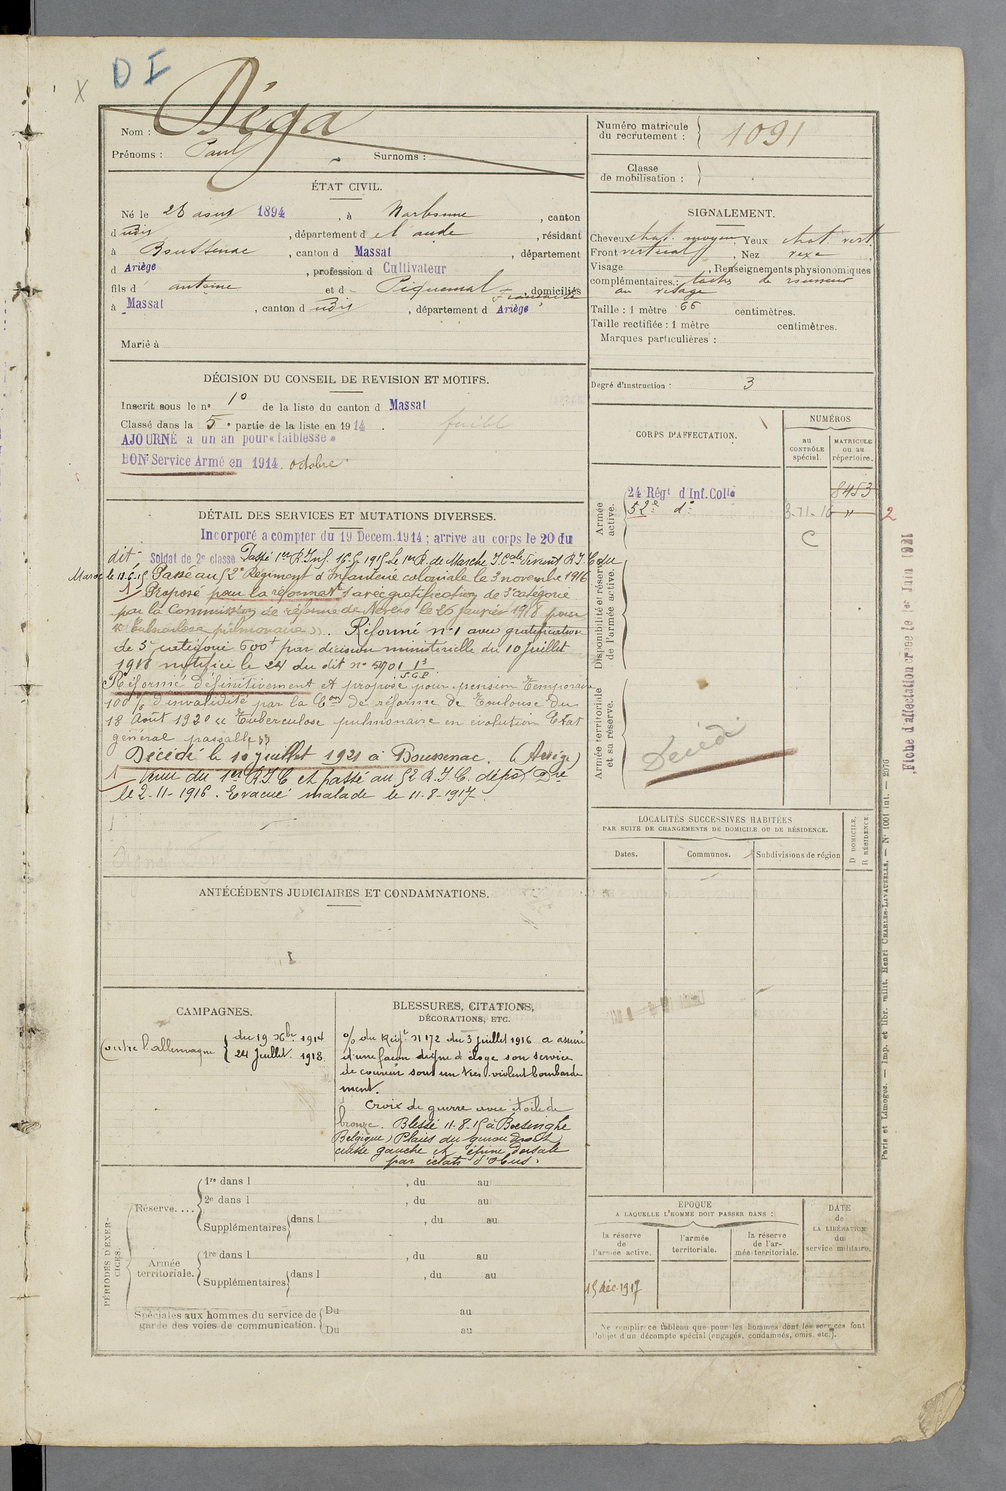 D I
X
Nom : Déga
Prénoms : Paul Surnoms :
ÉTAT CIVIL.
Né le 28 aout 1894, à Narbonne, canton
d udit, département d el aude, résidant
à Boussenac, canton d Massat, département
d Ariège, profession d Cultivateur
fils d antoine et d Piquemal, domiciliés
à Massat, canton d udit, département d Ariège
Marié à
DÉCISION DU CONSEIL DE REVISION ET MOTIFS.
Inscrit sous le n° 10 de la liste du canton d Massat
Classé dans la 5e partie de la liste en 1914.
AJOURNÉ à un an pour « faiblesse »
BON Service Armé en 1914. octobre
DÉTAIL DES SERVICES ET MUTATIONS DIVERSES.
Incorporé a compter du 19 Decem. 1914 ; arrivé au corps le 20 du
dit. Soldat de 2e classe
Passé au 52e Régiment d'Infanterie coloniale le 3 novembre 1916
Proposé pour la réforme n° 1 avec gratification de 5e catégorie
par la Commission de réforme de Nevers le 26 février 1918 pour
« Tuberculose pulmonaire ». Réformé n° 1 avec gratification
de 5e catégorie 600f par décision ministérielle du 10 juillet
1918 notifiée le 24 du dit n° 5701
Réformé définitivement et proposé pour pension temporaire
100 % d'invalidité par la Con de réforme de Toulouse du
18 Août 1920 « Tuberculose pulmonaire en évolution Etat
général passable »
Décédé le 10 juillet 1921 à Boussenac. (Ariège)
Venu du 1er R.I.C et passé au 52 R.I.C. dépôt
le 2-11-1916. Evacué malade le 11-8-1917.
ANTÉCÉDENTS JUDICIAIRES ET CONDAMNATIONS.
CAMPAGNES.
Contre l'allemagne { du 19 Xbre 1914
24 juillet 1918
BLESSURES, CITATIONS,
DÉCORATIONS, ETC.
% du Régt n 172 du 3 juillet 1916 a assuré
d'une façon digne d'éloge son service
de coureur sous un très violent bombarde
ment.
Croix de guerre avec étoile de
bronze. Blessé 11.8.15 à Boesinghe
(Belgique) Plaies du genou droit
cuisse gauche et épine dorsale
par éclats d'obus.
PÉRIODES D'EXERCICES.
Réserve....
1re dans l , du au
2e dans l , du au
Supplémentaires dans l , du au
Armée territoriale.
1re dans l , du au
Supplémentaires dans l , du au
Spéciales aux hommes du service de
garde des voies de communication.
Du au
Du au
Numéro matricule
du recrutement : 1091
Classe
de mobilisation :
SIGNALEMENT.
Cheveux chat. moyen Yeux chat. vert
Front vertical, Nez
Visage , Renseignements physionomiques
complémentaires : taches de rousseur
au visage
Taille : 1 mètre 66 centimètres.
Taille rectifiée : 1 mètre centimètres.
Marques particulières :
Degré d'instruction : 3
CORPS D'AFFECTATION.
NUMÉROS
au
CONTRÔLE
spécial.
MATRICULE
ou au
répertoire.
Armée
active.
24 Régt d'Inf. Colle 8453
52e do 3-11-16 "
2
C
Disponibilité et réserve
de l'armée active.
Armée territoriale
et sa réserve.
Décédé
LOCALITÉS SUCCESSIVES HABITÉES
PAR SUITE DE CHANGEMENTS DE DOMICILE OU DE RÉSIDENCE.
Dates.
Communes.
Subdivisions de région
D DOMICILE.
R RÉSIDENCE.
ÉPOQUE
A LAQUELLE L'HOMME DOIT PASSER DANS :
la réserve
de
l'armée active.
l'armée
territoriale.
la réserve
de l'ar-
mée territoriale.
DATE
de
LA LIBÉRATION
du
service militaire.
15 déc. 1917
Ne remplir ce tableau que pour les hommes dont les services font
l'objet d'un décompte spécial (engagés, condamnés, omis, etc.).
Fiche d'affectation créée le 1er Juin 1921
Paris et Limoges. — Imp. et libr. milit. Henri CHARLES-LAVAUZELLE. — N° 1001 int. — 2976